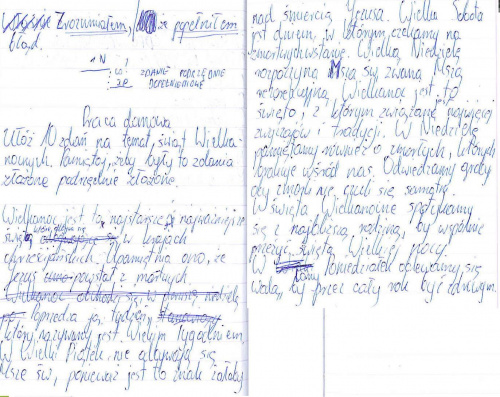 Zrozumiałem, że popełniłem
błąd.
1 N
ZDANIE PODRZĘDNIE
2 P DOPEŁNIENIOWE
Praca domowa
Ułóż 10 zdań na temat świąt Wielka-
nocnych. Pamiętaj, żeby były to zdania
złożone podrzędnie złożone.
Wielkanoc jest to najstarsze i najważniejsze
święto w krajach
chrześcijańskich. Upamiętnia ono, że
Jezus powstał z martwych.
Wielkanoc obchodzi się w pierwszą niedzielę
po Poprzedza ją tydzień,
który nazywany jest Wielkim Tygodniem.
W Wielki Piątek nie odbywają się
Msze św., ponieważ jest to znak żałoby
nad śmiercią Jezusa. Wielka Sobota
jest dniem, w którym czekamy na
zmartwychwstanie. Wielką Niedzielę
rozpoczyna Msza św. zwana Mszą
rezurekcyjną. Wielkanoc jest to
święto, z którym związane jest najwięcej
zwyczajów i tradycji. W Niedzielę
pamiętamy również o zmarłych, których
brakuje wśród nas. Odwiedzamy groby
aby zmarli nie czuli się samotni.
W święta Wielkanocne spotykamy
się z najbliższą rodziną, by wspólnie
przeżyć święta Wielkiej Nocy.
W Lany Poniedziałek oblewamy się
wodą, by przez cały rok być zdrowym.